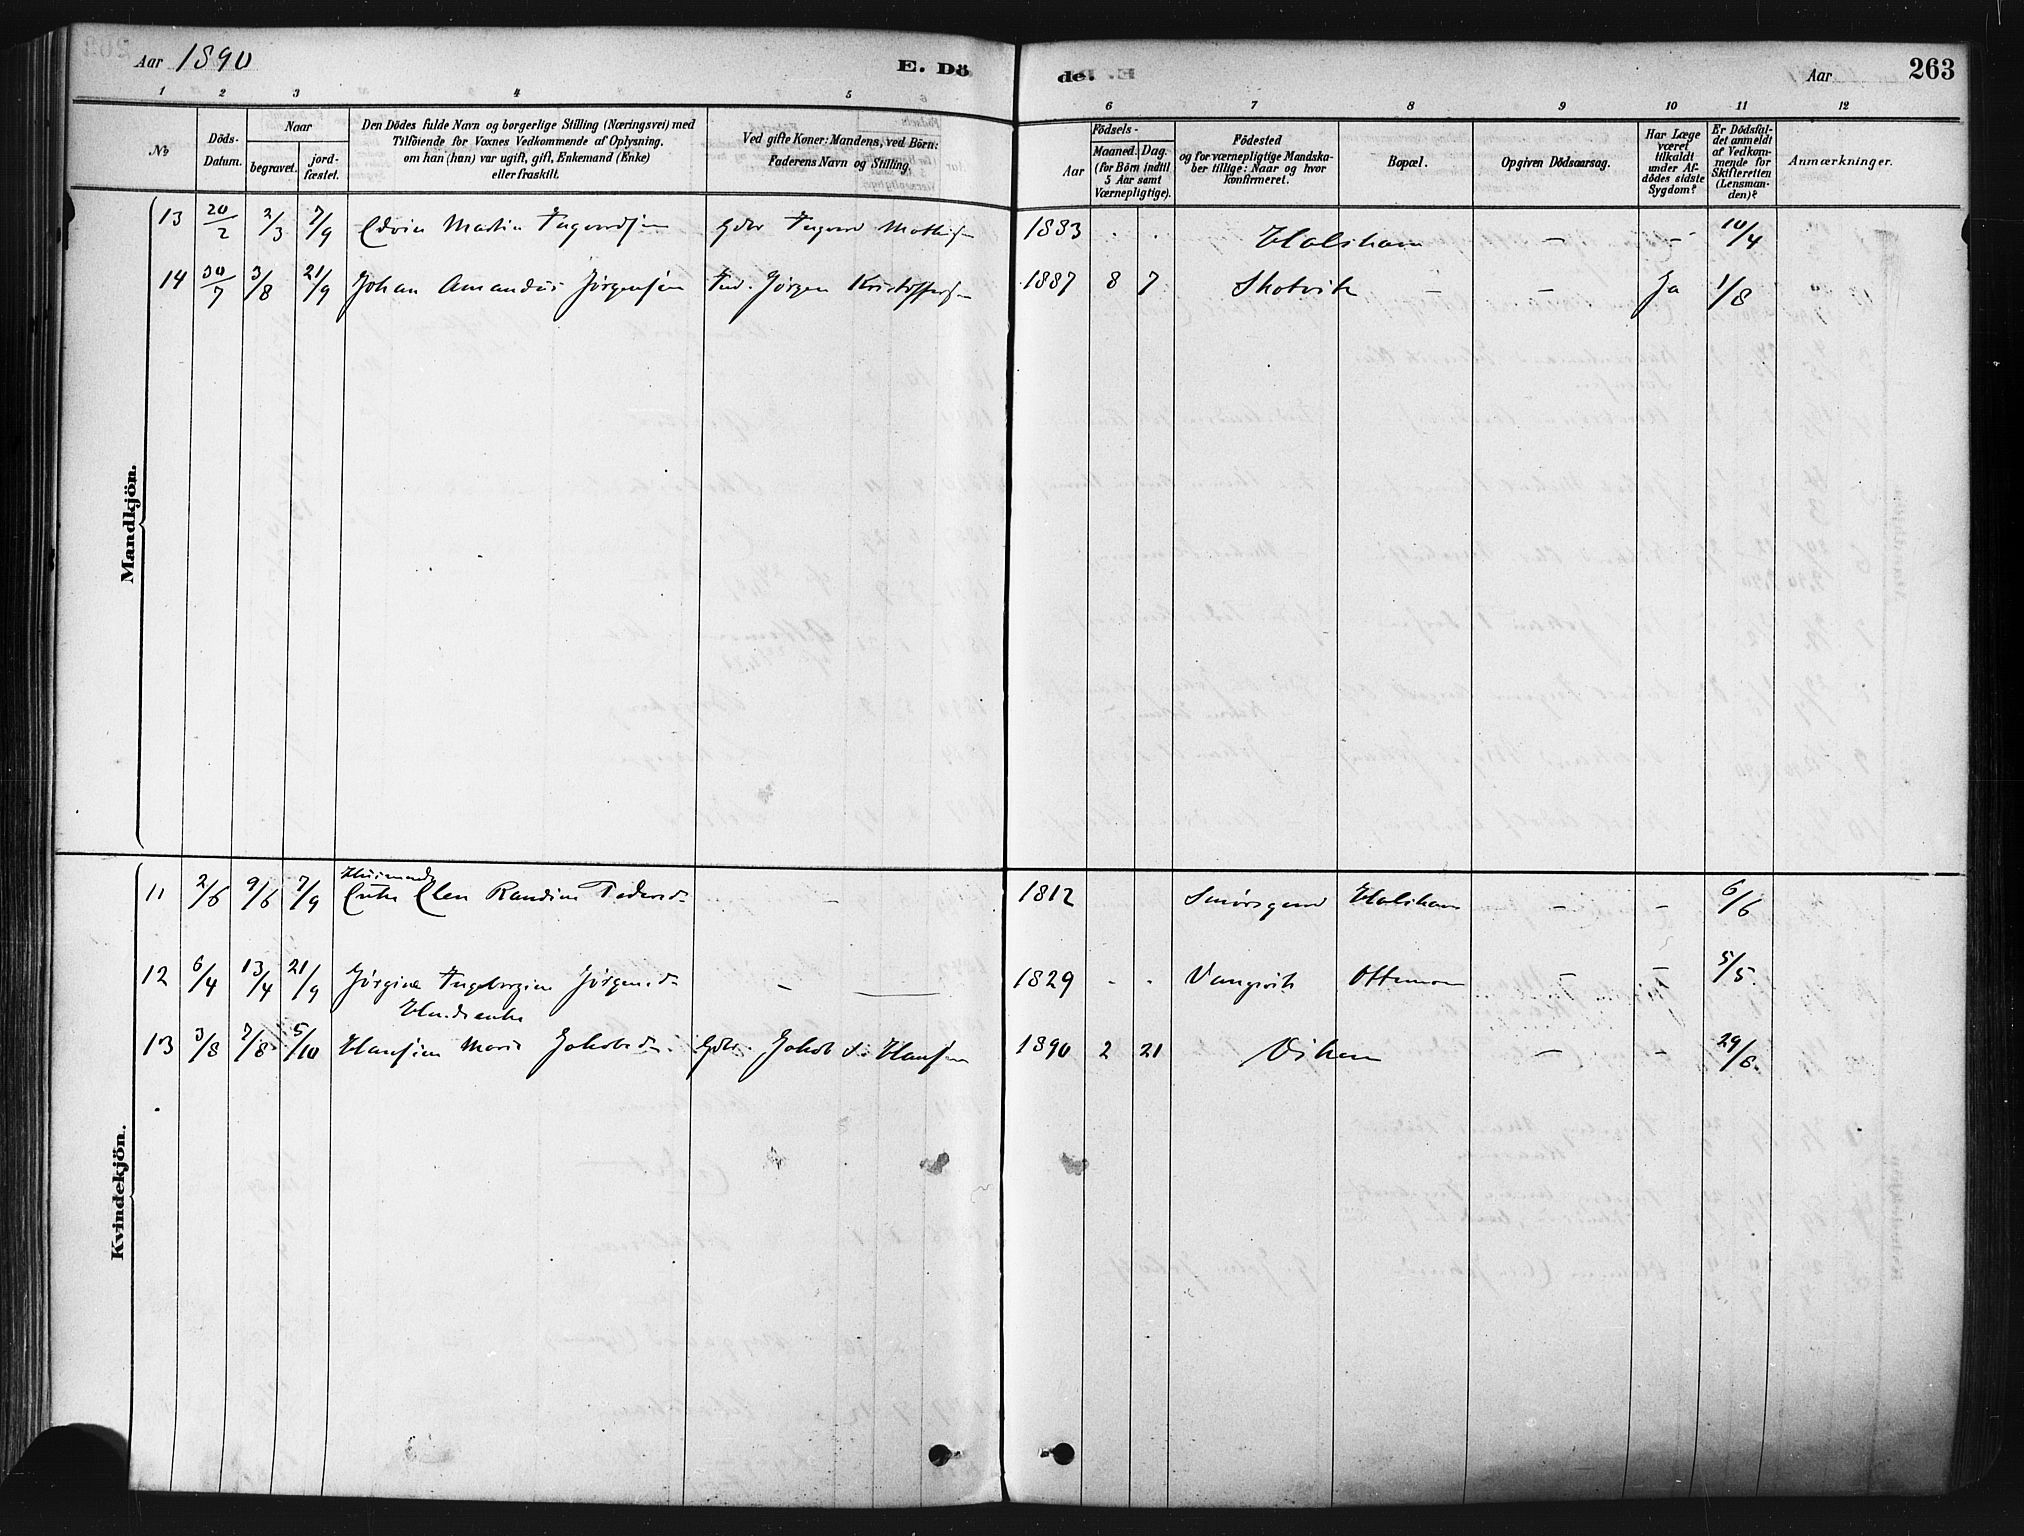 Aar 1890
E. Dö
de.
Aar
263
1 2 3 4 5 6 7 8 9 10 11 12
No
Döds-
Datum.
Naar
begravet.
jord-
fæstet.
Den Dödes fulde Navn og borgerlige Stilling (Næringsvei) med
Tilföiende for Voxnes Vedkommende af Oplysning,
om han (hun) var ugift, gift, Enkemand (Enke)
eller fraskilt.
Ved gifte Koner: Mandens, ved Börn:
Faderens Navn og Stilling.
Födsels-
Aar
Maaned. Dag.
(for Börn indtil
5 Aar samt
Værnepligtige).
Födested
og for værnepligtige Mandska-
ber tillige: Naar og hvor
konfirmeret.
Bopæl.
Opgiven Dödsaarsag.
Har Læge
været
tilkaldt
under Af-
dödes sidste
Sygdom?
Er Dödsfal-
det anmeldt
af Vedkom-
mende for
Skifteretten
(Lensman-
den)?
Anmærkninger.
Mandkjön.
13 20/2 2/3 7/9 Edvin Martin Ingvardsen Gdbr Ingvard Mathisen 1883 . . Halsham – – 10/4
14 30/7 3/8 21/9 Johan Amandus Jörgensen Ind. Jörgen Kristoffersen 1887 8 7 Skotvik – – Ja 1/8
Kvindekjön.
Husmands
11 2/6 9/6 7/9 Enke Elen Randine Pedersd. – 1812 Smörsgaard Halsham – – 6/6
12 6/4 13/4 21/9 Jörgine Ingeborgine Jörgensd. – 1829 . . Vangvik Ottem – – 5/5.
13 3/8 7/8 5/10 Hansine Marie Jakobsd. Gdbr. Jakob Hansen 1890 2 21 Viken – – 29/8.